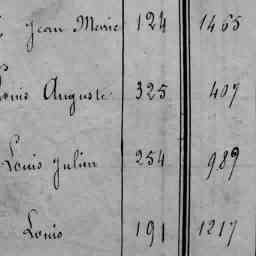 Jean Marie 124 1465
Louis Auguste 325 407
Louis Julien 254 989
Louis 191 1217